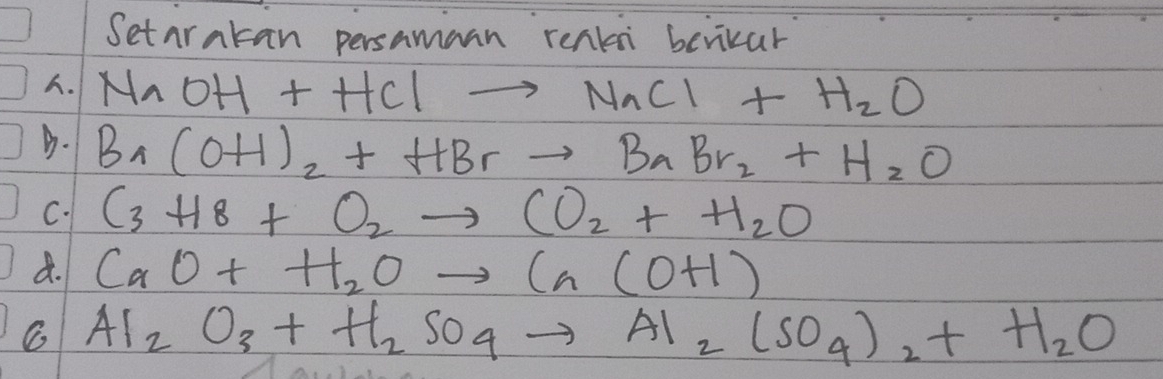 Setarakan persamaan reaksi berikut
a. NaOH + HCl → NaCl + H₂O
b. Ba(OH)₂ + HBr → BaBr₂ + H₂O
c. C₃H8 + O₂ → CO₂ + H₂O
d. CaO + H₂O → Ca(OH)
e Al₂O₃ + H₂SO₄ → Al₂(SO₄)₂ + H₂O